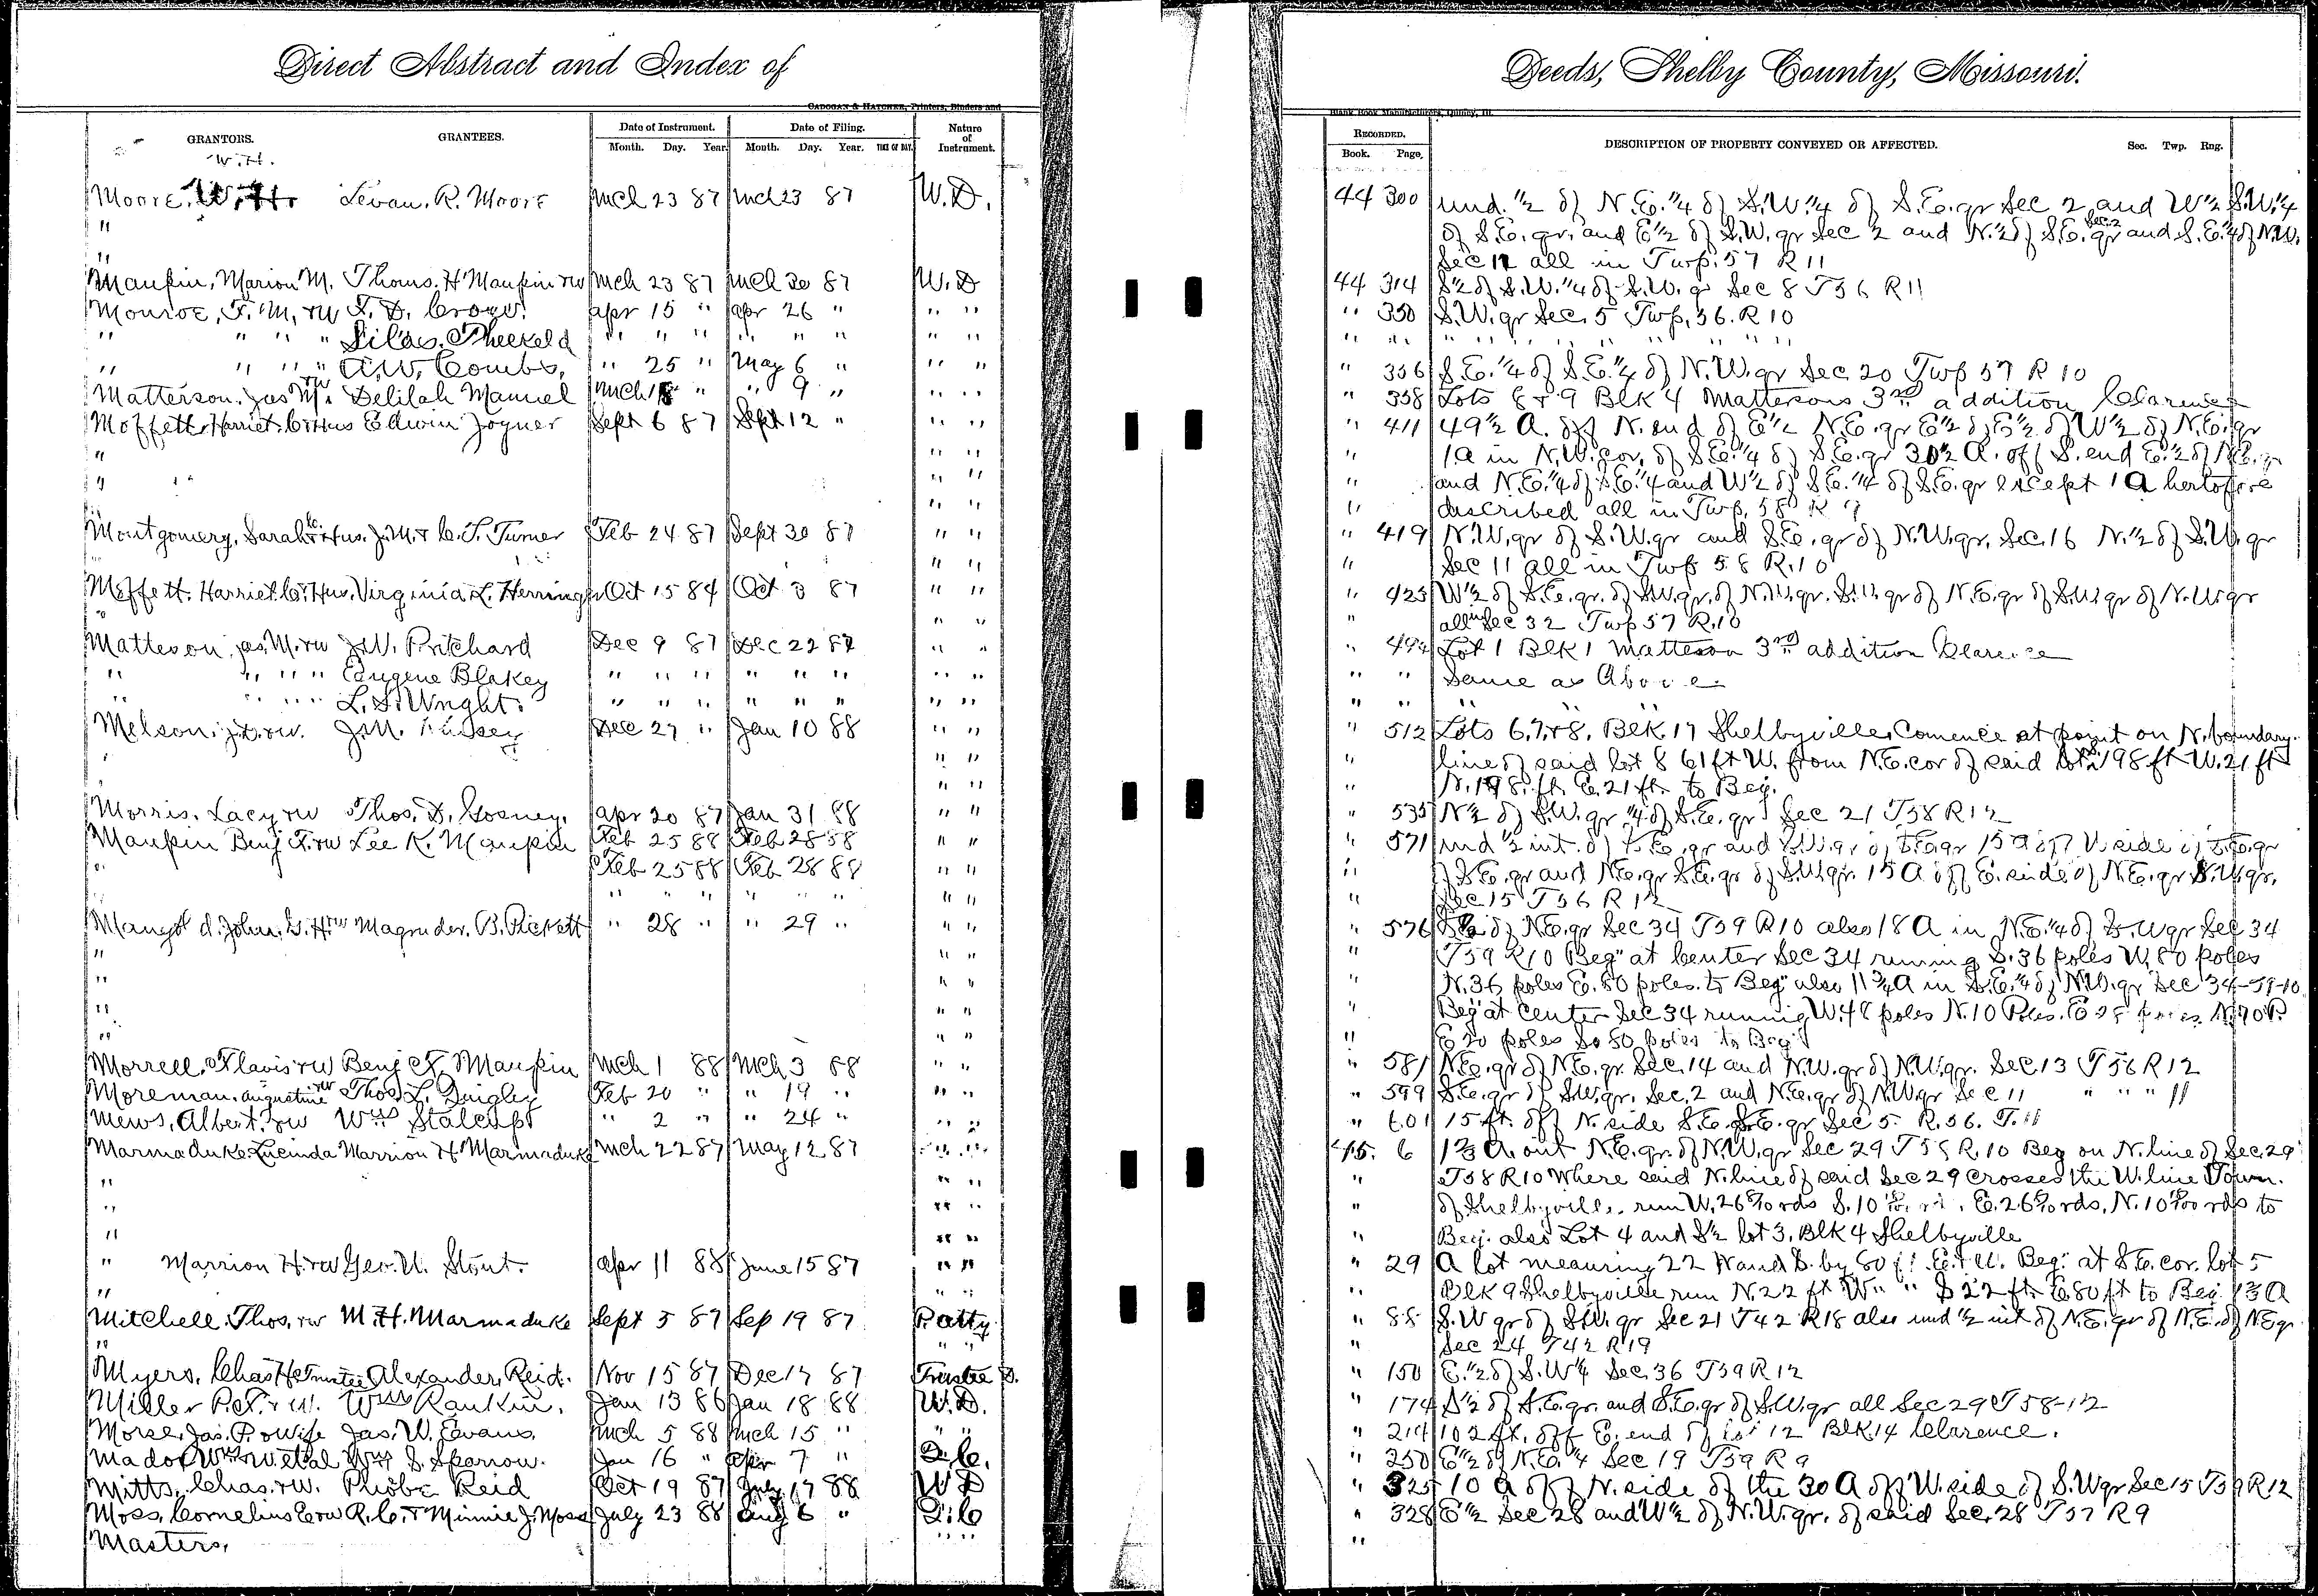 Direct Abstract and Index of
Deeds, Shelby County, Missouri.
CADOGAN & HATCHER, Printers, Binders and
Blank Book Manufacturers, Quincy, Ill.
GRANTORS. GRANTEES. Date of Instrument. Date of Filing. Nature of Instrument.
Month. Day. Year. Month. Day. Year. TIME OF DAY.
RECORDED. Book. Page. DESCRIPTION OF PROPERTY CONVEYED OR AFFECTED. Sec. Twp. Rng.
W.H.
Moore, W.H. Levan. R. Moore Mch 23 87 Mch 23 87 W.D. 44 300 und. 1/2 of N.E. 1/4 of S.W. 1/4 of S.E. qr Sec 2 and W 1/2 S.W. 1/4
" of S.E. qr. and E 1/2 of S.W. qr Sec 2 and N. 1/2 of S.E. qr Sec. 2 and S.E. 1/4 of N.W.
" Sec 12 all in Twp. 57 R 11
Maupin, Marion M. Thoms. H Maupin rw Mch 23 87 Mch 30 87 W.D 44 314 S 1/2 of S.W. 1/4 of S.W. qr Sec 8 T56 R11
Monroe, F. M. rw F. D. Crow. apr 15 " apr 26 " " " " 350 S.W. qr Sec. 5 Twp. 56. R 10
" " " " Silas. Threkeld " " " " " " " " " " " " " " " "
" " " " A.W. Combs. " 25 " May 6 " " " " 356 S.E. 1/4 of S.E. 1/4 of N.W. qr Sec. 20 Twp 57 R 10
Matterson. Jas M. rw Delilah Manuel Mch 18 " " 9 " " " " 358 Lots 8 & 9 Blk 4 Mattersons 3rd addition Clarence
Moffett, Harriet C. & Hus Edwin Joyner Sept 6 87 Sept 12 " " " " 411 49 1/2 A. off N. end of E 1/2 N.E. qr E 1/2 of E 1/2 of W 1/2 of N.E. qr
" " " " 1A in N.W. cor. of S.E. 1/4 of S.E. qr 30 1/2 A. off S. end E. 1/2 of N.E. qr
" " " " and N.E. 1/4 of S.E. 1/4 and W 1/2 of S.E. 1/4 of S.E. qr except 1 A hertofore
" " " " described all in Twp. 58 R 9
Montgomery, Sarah C. & Hus. J.M. & C. T. Turner Feb 24 87 Sept 30 87 " " " 419 N.W. qr of S.W. qr and S.E. qr of N.W. qr. Sec. 16 N. 1/2 of S.W. qr
" " " " Sec 11 all in Twp 58 R. 10
Moffett. Harriet C. & Hus. Virginia L. Herring Oct 15 84 Oct 3 87 " " " 425 W 1/2 of S.E. qr. of S.W. qr. of N.W. qr. S.W. qr of N.E. qr of S.W. qr of N.W. qr
" " " all in Sec 32 Twp 57 R. 10
Matteson, Jas. M. rw J.W. Pritchard Dec 9 87 Dec 22 87 " " " 494 Lot 1 Blk 1 Matteson 3rd addition Clarence
" " " " Eugene Blakey " " " " " " " " " " Same as Above
" " " " L. D. Wright. " " " " " " " " " " "
Melson, J.D. rw. J.M. Dec 27 " Jan 10 88 " " " 512 Lots 6, 7, & 8, Blk. 17 Shelbyville, Comence at point on N. boundary
" " " " line of said lot 8 61 ft W. from N.E. cor of said lot S. 198 ft W. 21 ft
" " " N. 198. ft. E. 21 ft. to Beg.
Morris. Lacy rw Thos. D. Gosney. apr 20 87 Jan 31 88 " " " 535 N 1/2 of S.W. qr 1/4 of S.E. qr Sec 21 T58 R12
Maupin Benj F. rw Lee K. Maupin Feb 25 88 Feb 28 88 " " " 571 und 1/2 int. of S.E. qr and S.W. qr of S.E. qr 15 A off W. side of S.E. qr
" Feb 25 88 Feb 28 88 " " " of S.E. qr and N.E. qr S.E. qr of S.W. qr. 15 A off E. side of N.E. qr S.W. qr.
" " " " " " " " " " Sec 15 T56 R 12
John. G. H. rw Magruder. B. Pickett " 28 " " 29 " " " " 576 of N.E. qr Sec 34 T59 R10 also 18 A in N.E. 1/4 of S.W qr Sec 34
" " " " T59 R10 Beg" at Center Sec 34 running S. 36 poles W. 80 poles
" " " " N. 36 poles E. 80 poles. to Beg" also 11 3/4 A in S.E. 1/4 of N.W. qr Sec 34-59-10
" " " " Beg at Center Sec 34 running W. 48 poles N. 10 Poles. E N. 70 P.
" " " " E 20 poles So 80 poles to Beg
Morrell, Flavis rw Benj F. Maupin Mch 1 88 Mch 3 88 " " " 581 N.E. qr of N.E. qr Sec. 14 and N.W. qr of N.W. qr. Sec 13 T56 R12
Moreman. Augustine rw Thos. L. Quigley Feb 20 " " 19 " " " " 599 S.E. qr of S.W. qr. Sec. 2 and N.E. qr of N.W. qr Sec 11 " " " 11
Mews, Albert. rw Wm Stalcup " 2 " " 24 " " " " 601 15 ft. off N. side S.E. S.E. qr Sec 5. R. 56. T. 11
Marmaduke Lucinda Marrion H Marmaduke Mch 22 87 May 12 87 " " 45. 6 1 2/3 A. out N.E. qr. of N.W. qr Sec 29 T58 R. 10 Beg on N. line of Sec. 29
" " " " T58 R10 Where said N. line of said Sec 29 crosses the W. line Town.
" " " " of Shelbyville, run W. 26 rds S. 10 E. 26 rds, N. 10 rds to
" " " Beg. also Lot 4 and S 1/2 lot 3, Blk 4 Shelbyville
" Marrion H. rw Geo. W. Stout. apr 11 88 June 15 87 " " " 29 A lot meauring 22 N and S. by 80 ft E. & W. Beg. at S.E. cor. lot 5
" " " " Blk 9 Shelbyville run N. 22 ft W " " S 22 ft E 80 ft to Beg.
Mitchell. Thos. rw M. H. Marmaduke Sept 5 87 Sep 19 87 P. atty. " 88 S.W qr of S.W. qr Sec 21 T42 R18 also und 1/2 int of N.E. qr of N.E. of NE qr
" " " Sec 24 T42 R19
Myers. Chas H Trustee Alexander, Reid. Nov 15 87 Dec 17 87 Trustee D. " 150 E. 1/2 of S.W 1/4 Sec. 36 T59 R12
Miller P. F. & w. Wm Rankin. Jan 13 86 Jan 18 88 W.D. " 174 S 1/2 of S.E. qr. and S.E. qr of S.W. qr all Sec 29 T 58-12
Morse, Jas. P. & wife Jas. W. Evans. Mch 5 88 Mch 15 " " " " 214 102 ft. off E. end of lot 12 Blk. 14 Clarence.
Mador Wm rw etal Wm S. Sparrow. Jan 16 " apr 7 " Q.C. " 250 E 1/2 of N.E. 1/4 Sec 19 T59 R9
Mitts, Chas. rw. Phobe Reid Oct 19 87 July 17 88 W D " 325 10 A off N. side of the 30 A off W. side of S.W qr Sec 15 T59 R12
Moss, Cornelius E rw R. C. & Minnie J. Moss July 23 88 Aug 6 " Q.C " 328 E 1/2 Sec 28 and W 1/2 of N.W. qr. of said Sec. 28 T57 R9
Masters, " " "